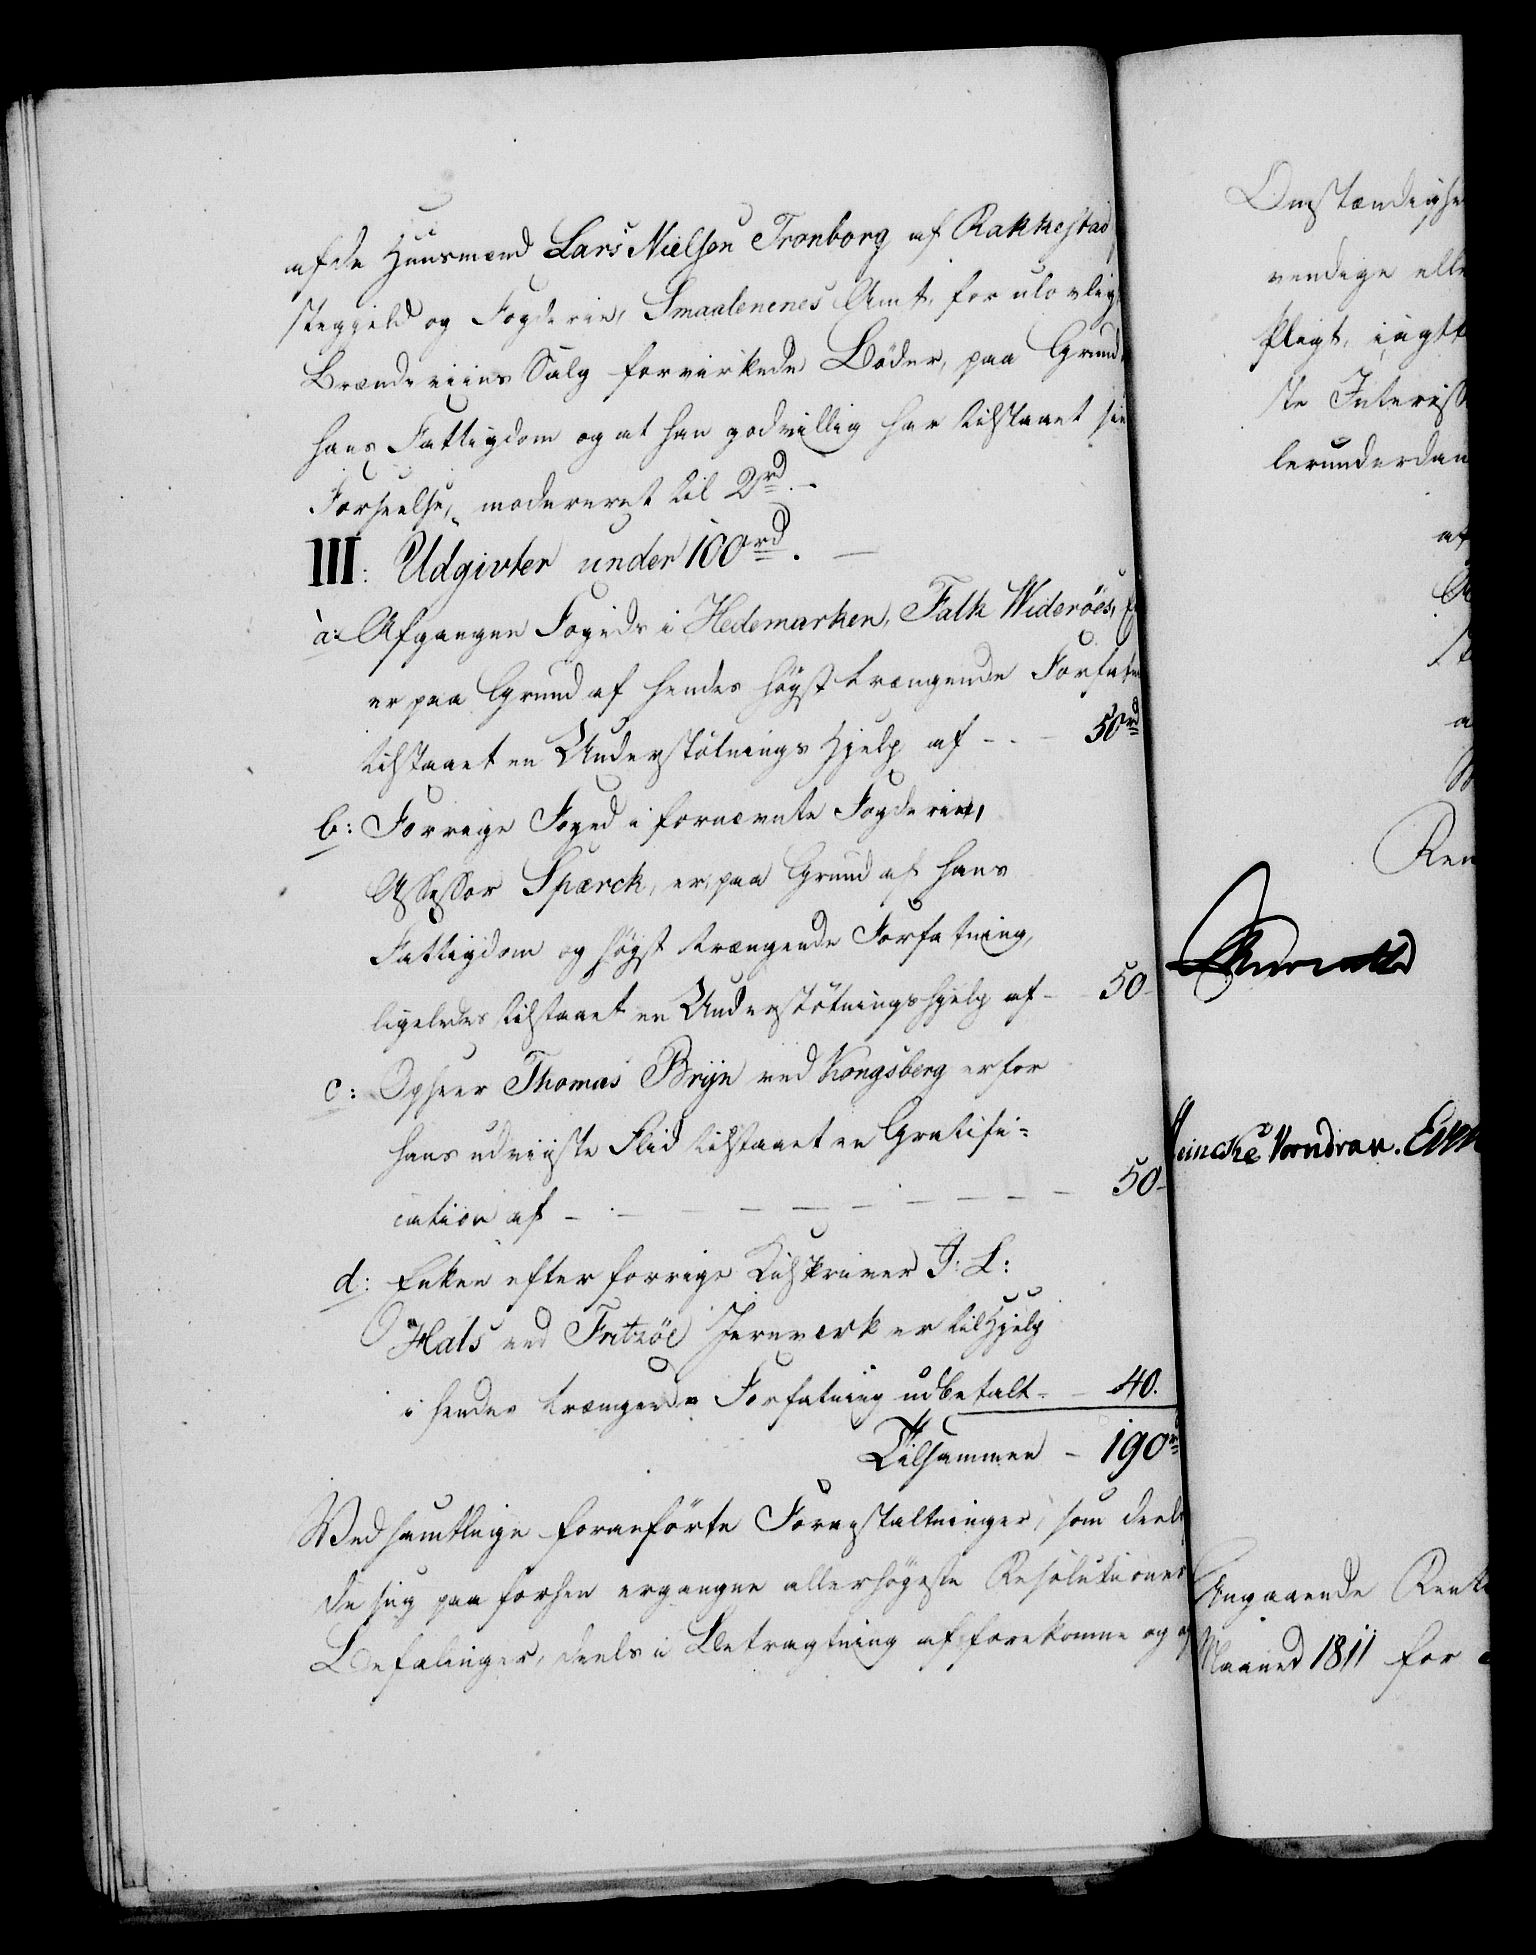 af de Huusmænd Lars Nielsen Tronborg af Rakkestad
stegjeld og Fogderie, Smaalenenes Amt, for ulovlig
Brændeviins Salg forvirkede Böder, paa Grund
hans Fattigdom og at han godvillig har tilstaaet sin
Forseelse, modereret til 2rd.
III: Udgivter under 100rd.
a: Afgangne Fogeds i Hedemarken, Falk Wideröes,
er paa Grund af hendes högst trængende Forfatn
tilstaaet en Understötnings Hjelp af - - 50rd
b: Forrige Foged i fornævnte Fogderie,
Assessor Spærck, er, paa Grund af hans
Fattigdom og högst trængende Forfatning,
ligeledes tilstaaet en Understötningshjelp af - 50-
c: Opseer Thomas Bryn ved Kongsberg er for
hans udviiste Flid tilstaaet en Gratifi-
cation af - - - - - - - 50-
d: Enken efter forrige Tilskriver J: L:
Hals ved Fritzöe Jernværk er til Hjelp
i hendes trængende Forfatning udbetalt - - 40.
Tilsammen - 190rd
Ved samtlige foranförte Foranstaltninger, som deels
de sig paa forhen ergangne allerhögeste Resolutioner
Befalinger, deels i Betragtning af forekomne og
Omstændighe
vendige elle
Pligt, iagtt
ste Interess
lerunderdan
af
Ren
Vorndran.
Angaaende Rente
Maaned 1811 for